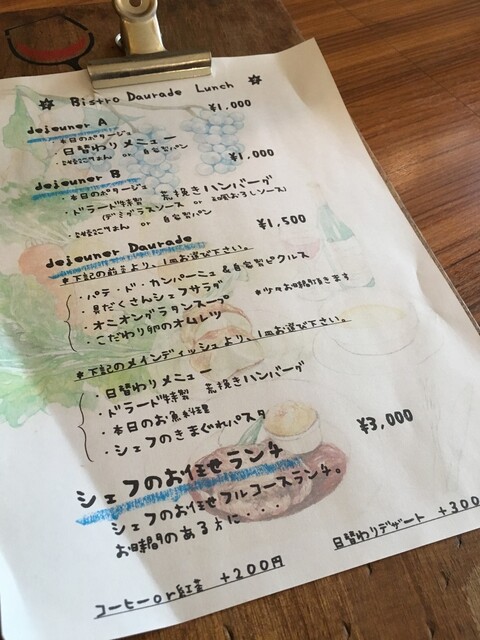 Bistro Daurade Lunch
dejeuner A ¥1,000
・本日のポタージュ
・日替わりメニュー
・ or 自家製パン
dejeuner B ¥1,000
・本日のポタージュ
・ドラード特製 荒挽きハンバーグ
(デミグラスソース or 和風おろしソース)
・ or 自家製パン
dejeuner Daurade ¥1,500
*下記の前菜より、1皿お選び下さい。
・パテ・ド・カンパーニュ&自家製ピクルス
・具だくさんシェフサラダ
・オニオングラタンスープ *少々お時間頂きます
・こだわり卵のオムレツ
*下記のメインディッシュより、1皿お選び下さい。
・日替わりメニュー
・ドラード特製 荒挽きハンバーグ
・本日のお魚料理
・シェフのきまぐれパスタ
シェフのお任せランチ ¥3,000
シェフのお任せフルコースランチ。
お時間のある方に・・・
コーヒーor紅茶 +200円
日替わりデザート +300